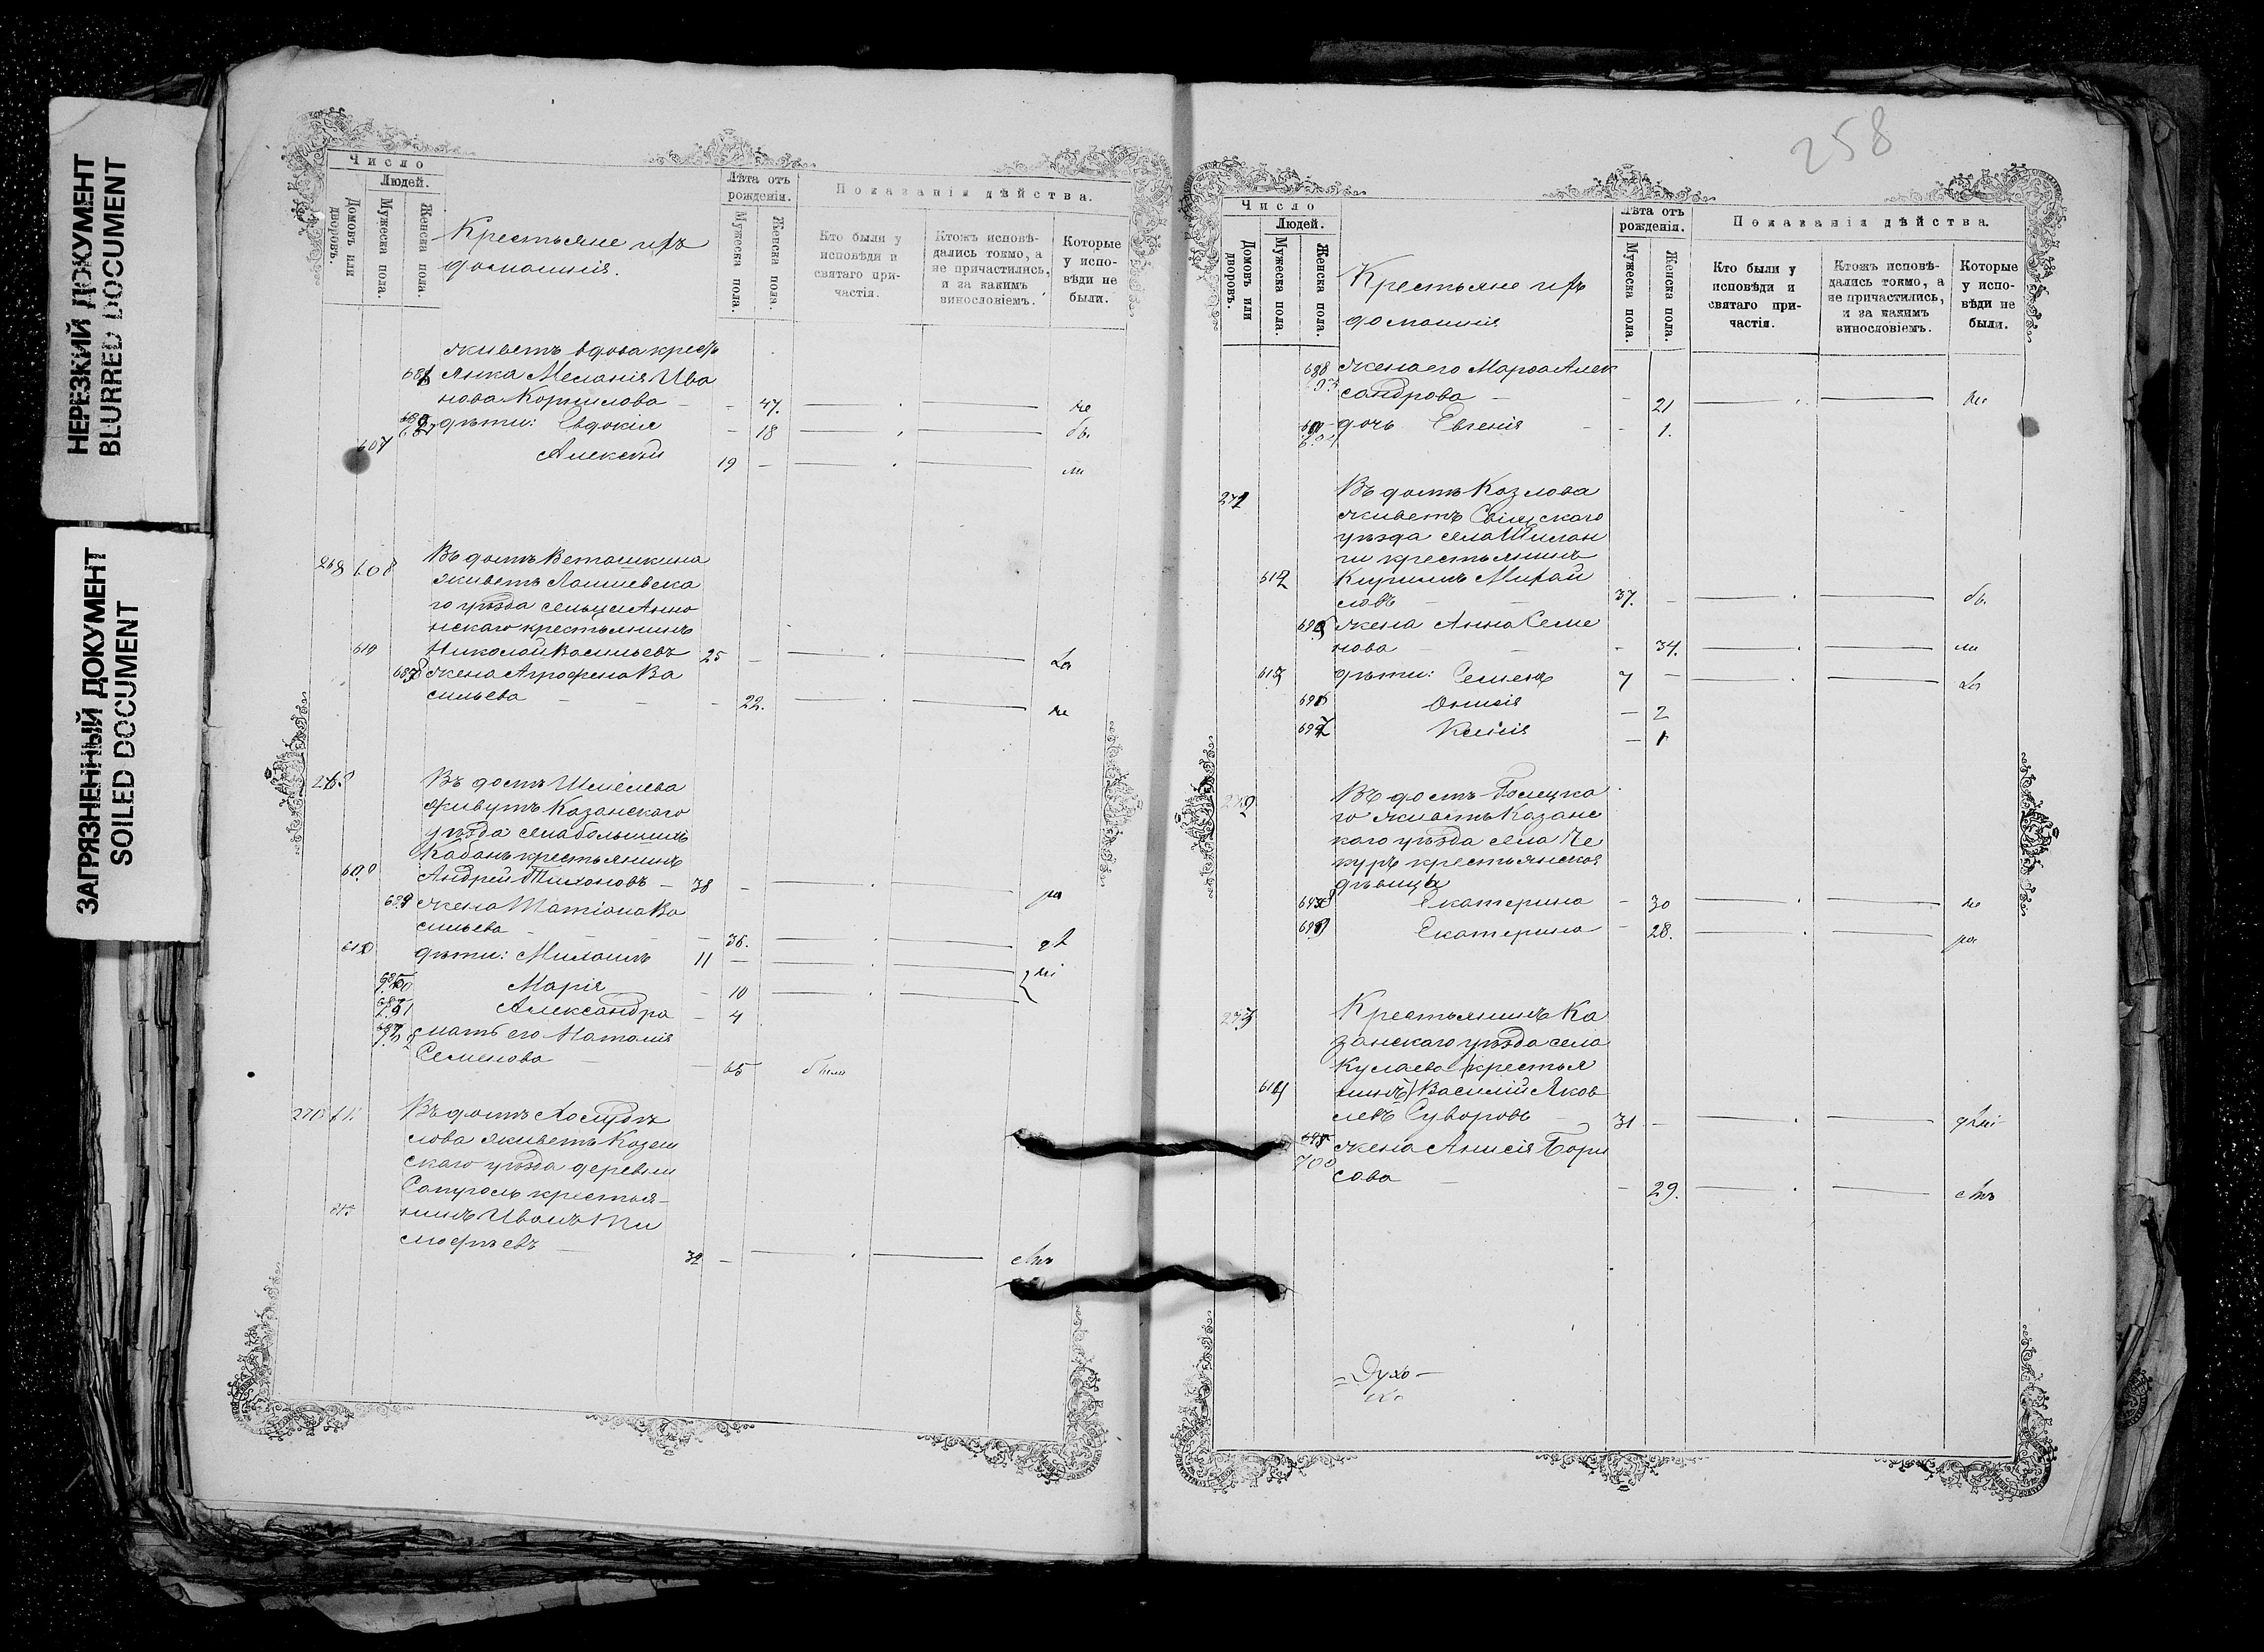 НЕРЕЗКИЙ ДОКУМЕНТ
BLURRED DOCUMENT
ЗАГРЯЗНЕННЫЙ ДОКУМЕНТ
SOILED DOCUMENT
Число
Людей.
Домовъ или дворовъ.
Мужеска пола.
Женска пола.
Крестьяне ихъ
домашнія.
Лѣта отъ рожденія.
Мужеска пола.
Женска пола.
Показанія дѣйства.
Кто были у исповѣди и святаго причастія.
Ктожъ исповѣдались токмо, а не причастились, и за какимъ винословіемъ.
Которые у исповѣди не были.
живетъ вдова кресть
янка Меланія Ива
нова Корнилова 47. не
дѣти: Евдокія 18 бы
607 Алексѣй 19 ли
268 608 Въ домѣ Ветошкина
живетъ Лаишевска
го уѣзда сельца Анно
нскаго крестьянинъ
Николай Васильевъ 25
жена Агрофена Ва
сильева 22. не
Въ домѣ Шмелева
живутъ Казанскаго
уѣзда села большихъ
Кабанъ крестьянинъ
Андрей Тихоновъ 38 ра
жена Татіана Ва
сильева 36.
дѣти: Михаилъ 11
Марія 10
Александра 4
мать его Наталія
Семенова 65 была
270 Въ домѣ
лова живетъ Козем
скаго уѣзда деревни
крестья-
нинъ Иванъ Ти
мофѣевъ 32
258
Число
Людей.
Домовъ или дворовъ.
Мужеска пола.
Женска пола.
Крестьяне ихъ
домашнія
Лѣта отъ рожденія.
Мужеска пола.
Женска пола.
Показанія дѣйства.
Кто были у исповѣди и святаго причастія.
Ктожъ исповѣдались токмо, а не причастились, и за какимъ винословіемъ.
Которые у исповѣди не были.
жена его Марѳа Алек
сандрова 21 не
дочь Евгенія 1.
271 Въ домѣ Козлова
живетъ Свіяжскаго
уѣзда села Шелан
ги крестьянинъ
612 Кириллъ Михай
ловъ 37. бы
жена Анна Семе
нова 34. ли
613 дѣти: Семенъ 7
2
Ксенія 1
272 Въ домѣ Полецка
го живетъ Казанс
каго уѣзда села Че
пуръ крестьянская
дѣвица
Екатерина 30 не
Екатерина 28. ра
273 Крестьянинъ Ка
занскаго уѣзда села
Кулаево (крестья
614 нинъ) Василій Яков
левъ Суворовъ 31
700 жена Анисія Бори
сова 29.
Духо-